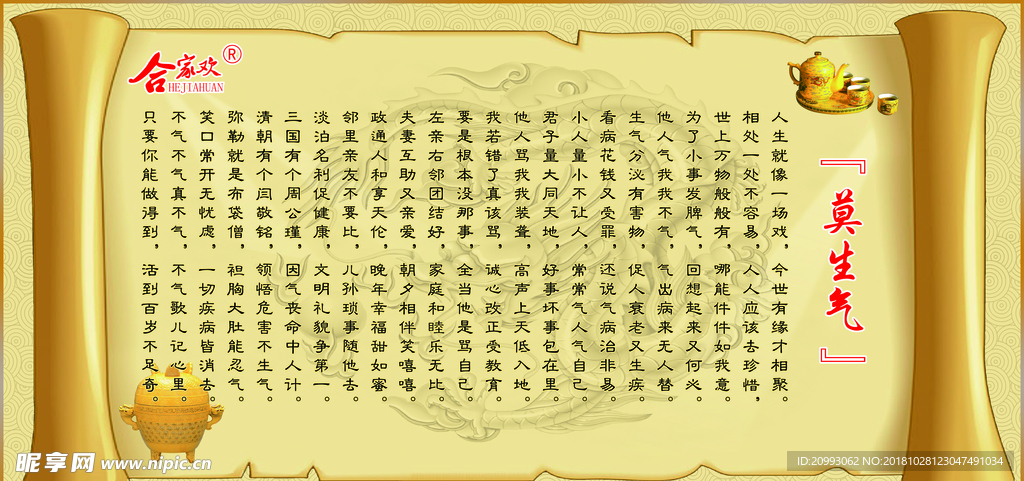 合家欢®
HEJIAHUAN
『莫生气』
人生就像一场戏,今世有缘才相聚。
相处一处不容易,人人应该去珍惜,
世上万物般般有,哪能件件如我意。
为了小事发脾气,回想起来又何必。
他人气我我不气,气出病来无人替。
生气分泌有害物,促人衰老又生疾。
看病花钱又受罪,还说气病治非易。
小人量小不让人,常常气人气自己。
君子量大同天地,好事坏事包在里。
他人骂我我装聋,高声上天低入地。
我若错了真该骂,诚心改正受教育。
要是根本没那事,全当他是骂自己。
左亲右邻团结好,家庭和睦乐无比。
夫妻互助又亲爱,朝夕相伴笑嘻嘻。
政通人和享天伦,晚年幸福甜如蜜。
邻里亲友不要比,儿孙琐事随他去。
淡泊名利促健康,文明礼貌争第一。
三国有个周公瑾,因气丧命中人计。
清朝有个闫敬铭,领悟危害不生气。
弥勒就是布袋僧,袒胸大肚能忍气。
笑口常开无忧虑,一切疾病皆消去。
不气不气真不气,不气歌儿记心里。
只要你能做得到,活到百岁不足奇。
昵享网 www.nipic.cn
ID:20993062 NO:20181028123047491034